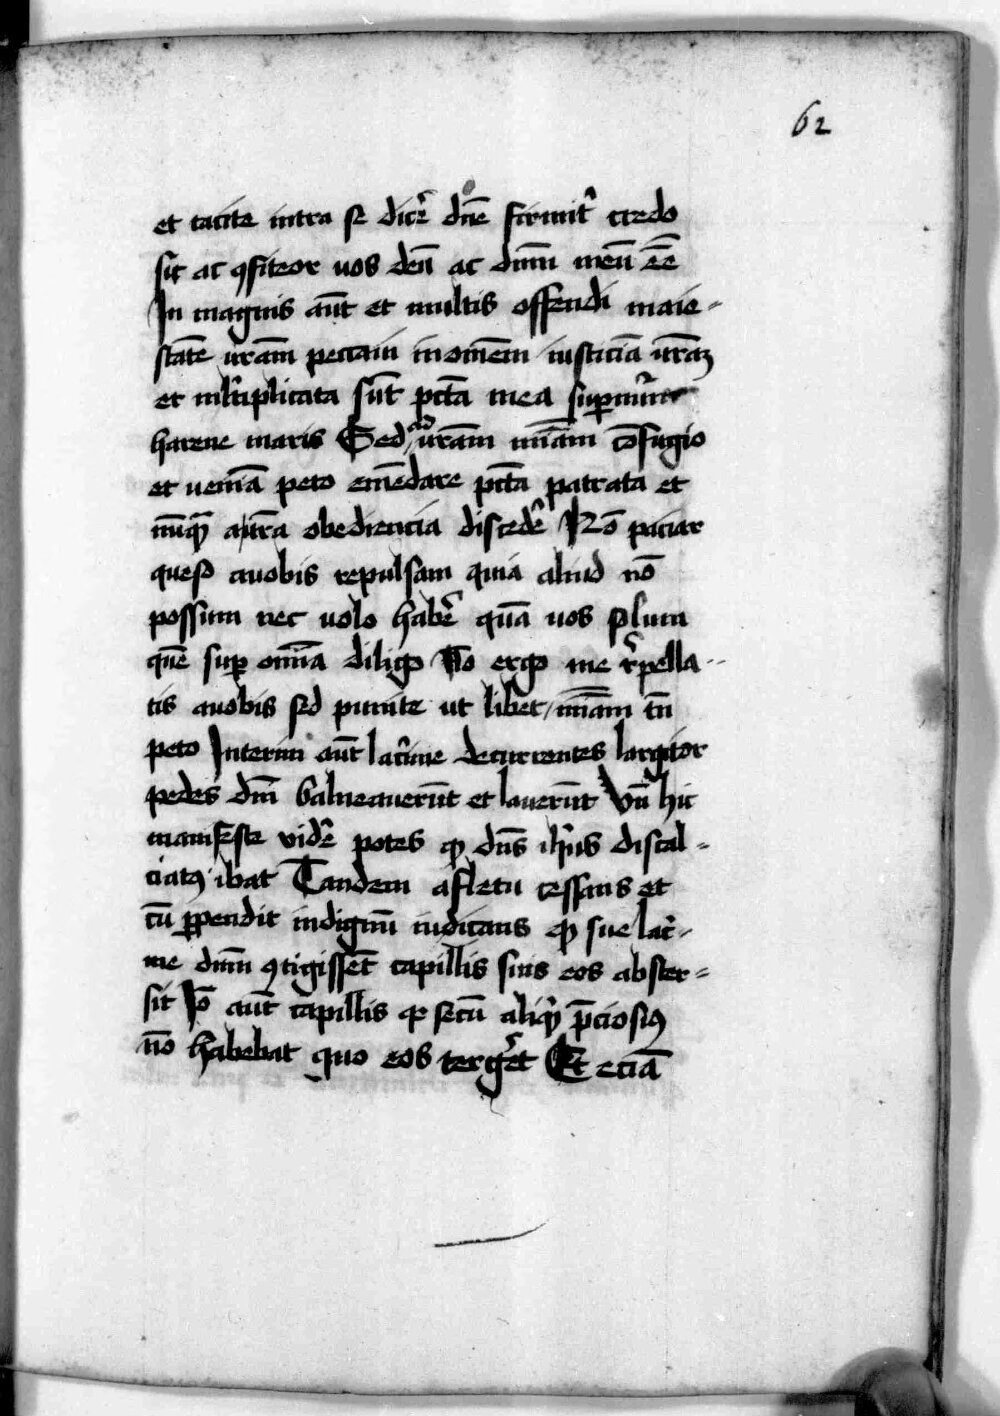 62
et tacite intra se dicẽ dñe firmit᷑ credo
sit ac ꝯfiteor uos deũ ac dñm meũ eẽ
In magnis aũt et multis offendi maie-
statẽ ur̃am peccaui in om̃em iusticiã ur̃aꝫ
et ml̃tiplicata sũt pctã mea
harene maris Sed ur̃am mĩam cõfugio
et ueniã peto emẽdare pctã patrata et
nũꝗ̃ a ur̃a obediencia discedẽ Nõ paciar
queso auobis repulsam quia aliud nõ
possum nec uolo habẽ quã uos solum
quẽ suꝑ om̃ia diligo Nõ ergo me rẽpella-
tis auobis sed punite ut libet mĩam tñ
peto Interim aũt lac̃rime decurrentes largiter
pedes dñi balneauerũt et lauerũt Vñ hic
manifeste uidẽ potes ꝙ dñs ih̃us discal-
ciatꝰ ibat Tandem a fletu cessans et
cũ ꝑpendit indignũ iudicans ꝙ sue lac̃ri-
me dñm ꝯtigissẽt capillis suis eos abster-
sit Iõ aũt capillis qr secũ aliꝗ̃ p̃ciosiꝰ
nõ habebat quo eos tergẽt Et eciã